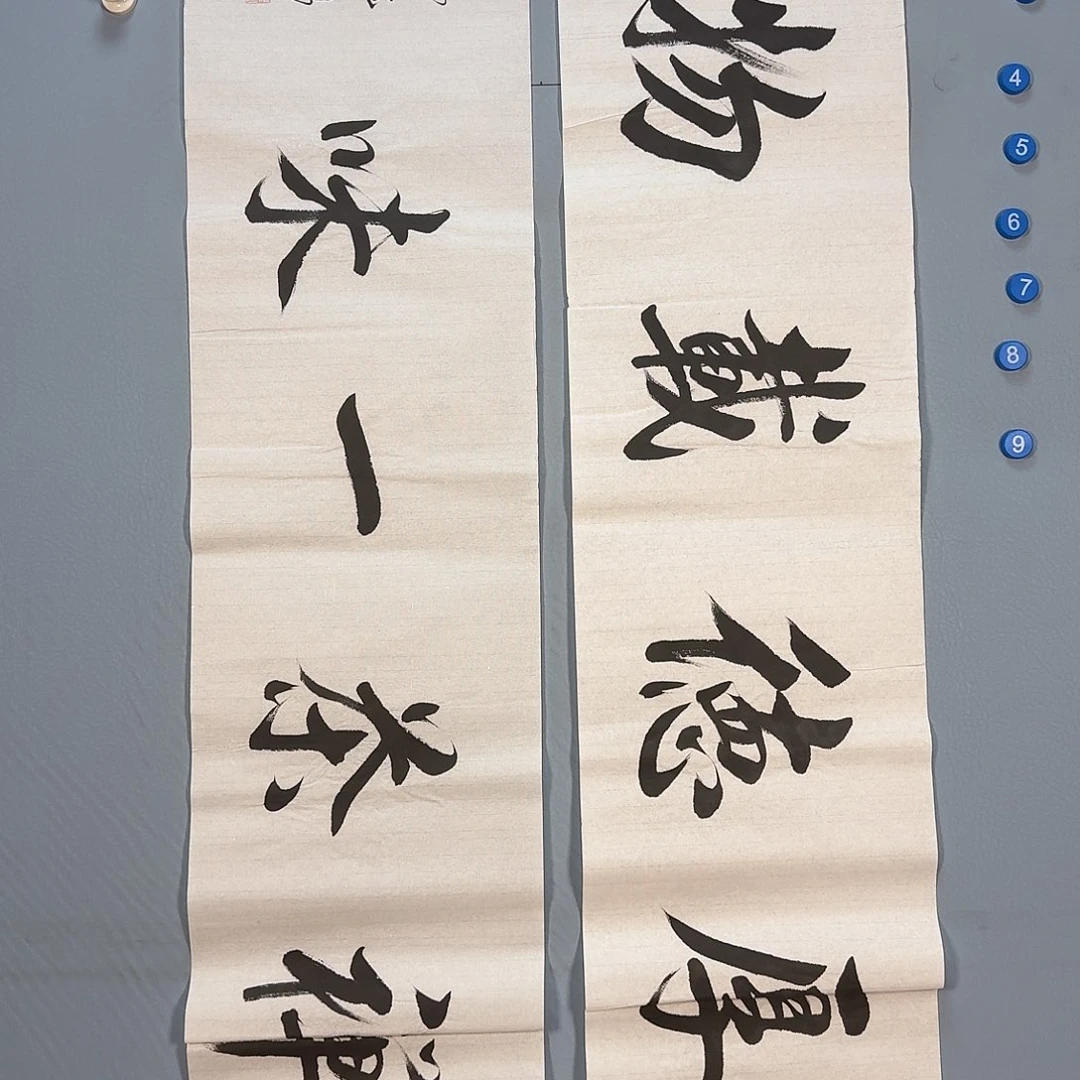 厚德載物
禅茶一味
4
5
6
7
8
9